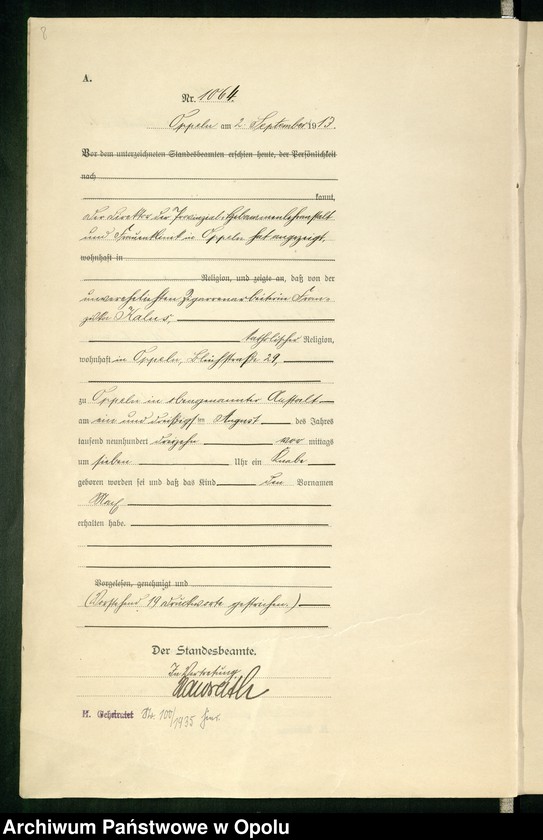 8
A.
Nr. 1064.
Oppeln am 2. September 1913.
Vor dem unterzeichneten Standesbeamten erschien heute, der Persönlichkeit
nach
kannt,
der Direktor der Provinzial-Hebammenlehranstalt
und Frauenklinik in Oppeln hat angezeigt,
wohnhaft in
Religion, und zeigte an, daß von der
unverehelichten Zigarrenarbeiterin Fran-
ziska Kalus,
katholischer Religion,
wohnhaft in Oppeln, 29,
zu Oppeln in obengenannter Anstalt
am ein und dreißigsten August des Jahres
tausend neunhundert dreizehn vor mittags
um sieben Uhr ein Knabe
geboren worden sei und daß das Kind den Vornamen
Max
erhalten habe.
Vorgelesen, genehmigt und
(Vorstehend 19 Druckworte gestrichen.)
Der Standesbeamte.
In Vertretung
H. Geheiratet Nr. 100/1935
Archiwum Państwowe w Opolu